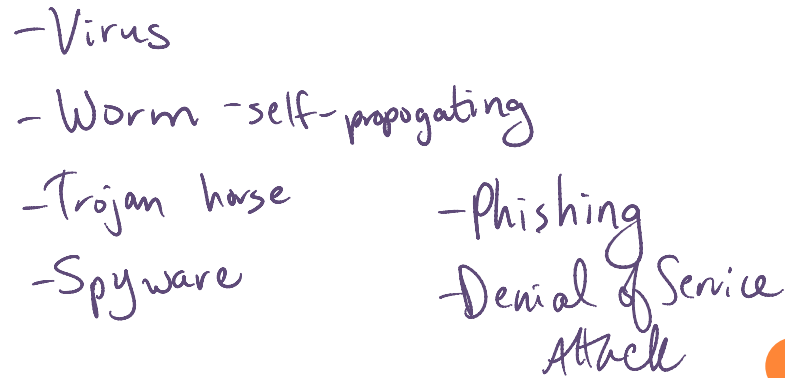 - Virus
- Worm - self-propogating
- Trojan horse
- Spyware
- Phishing
- Denial of Service
Attack